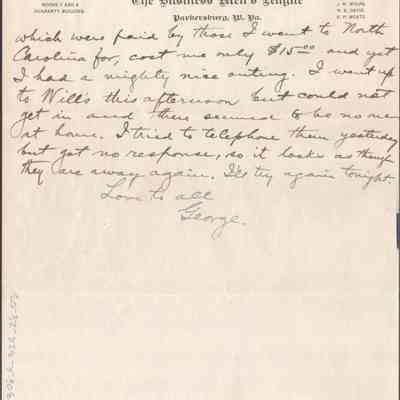 ROOMS 7 AND 8
GUARANTY BUILDING
The Business Men's League
Parkersburg, W. Va.
J. M. WOLFE
H. P. MOATS
which were paid by those I went to North
Carolina for, cost me only $15.00 and yet
I had a mighty nice outing. I went up
to Will's this afternoon but could not
get in and there seemed to be no one
at home. I tried to telephone them yesterday
but got no response, so it looks as though
they are away again. I'll try again tonight.
Love to all
George.